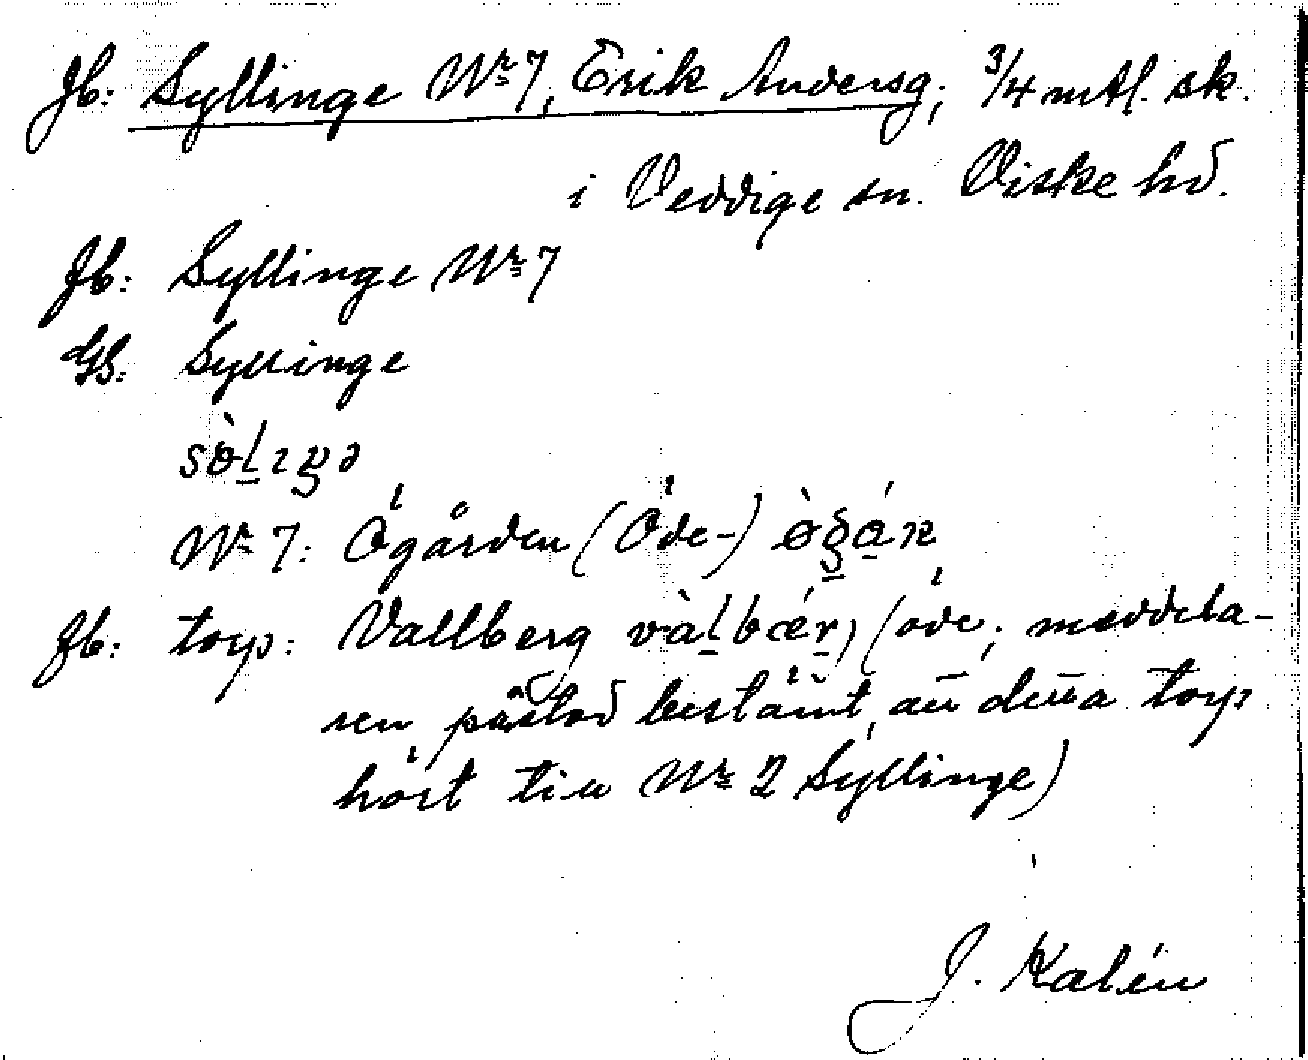 Jb: Syllinge Nr 7, Erik Andersg; 3/4 mtl. sk.
i Veddige sn. Viske hd.
Jb: Syllinge Nr 7
GS: Syllinge
Nr 7: Ögården (Öde-)
Jb: torp: Vallberg (öde; meddela-
ren påstod bestämt, att detta torp
hört till Nr 2 Syllinge)
J. Kalén